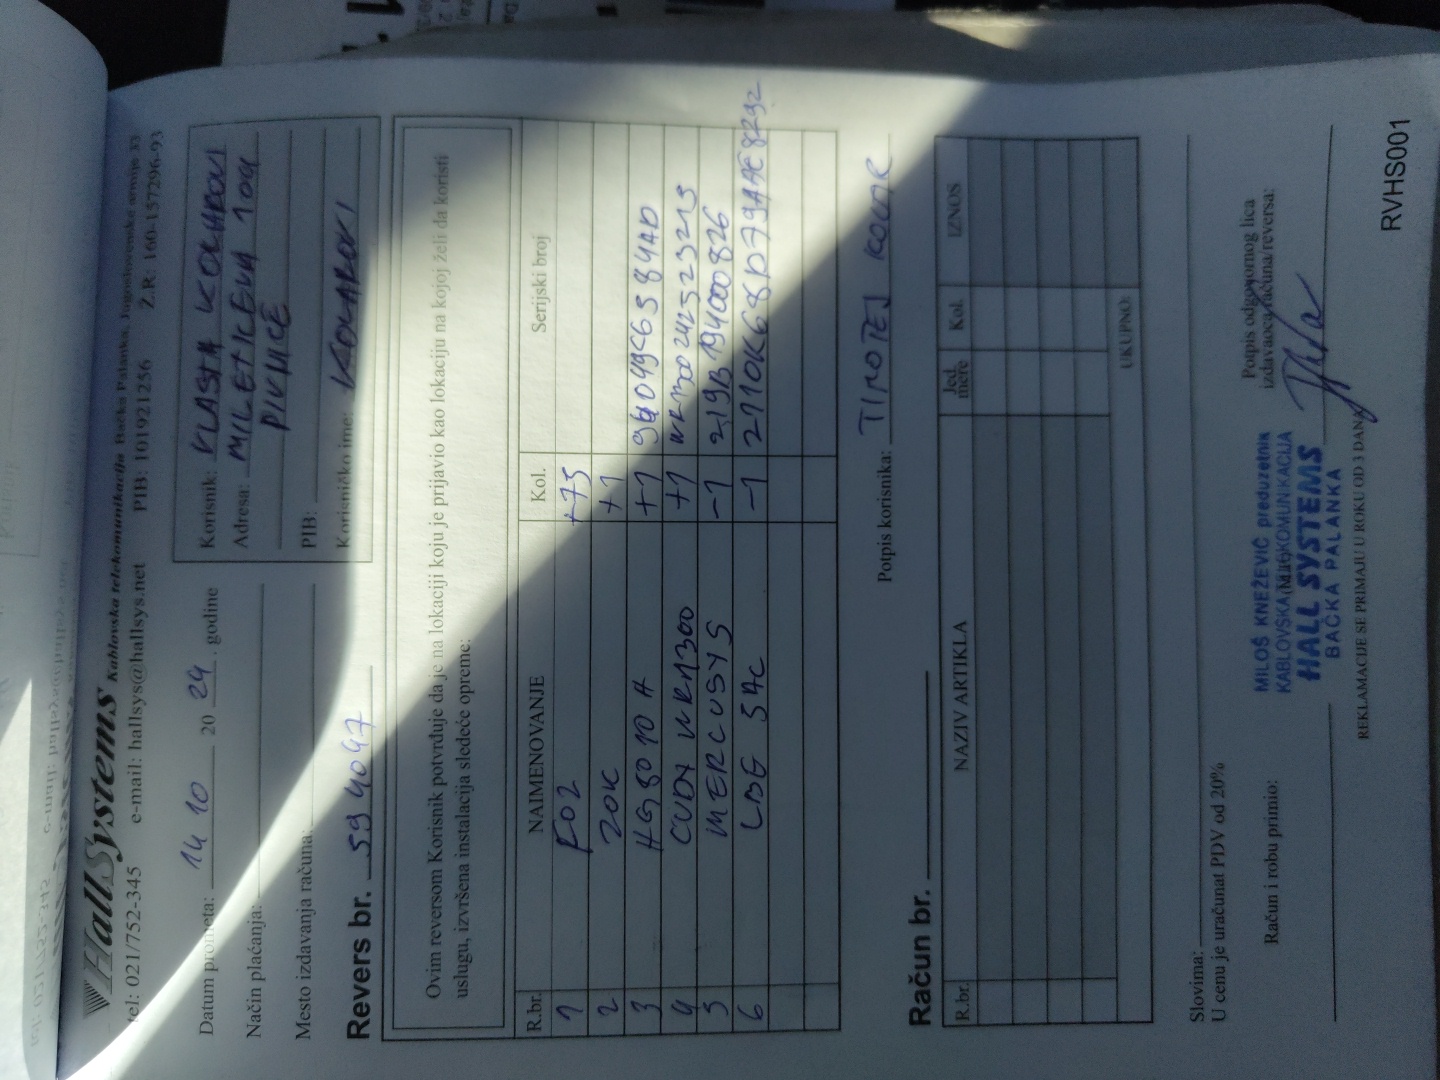 HallSystems Kablovska telekomunikacija Bačka Palanka, Jugoslovenske armije 33
tel: 021/752-345 e-mail: hallsys@hallsys.net PIB: 101921256 Ž.R: 160-157296-93
Datum prometa: 14 10 20 24 . godine
Način plaćanja:
Mesto izdavanja računa:
Korisnik: VLASTA KOLAROVI
Adresa: MILETIĆEVA 109
PIVNICE
PIB:
Korisničko ime: KOLAROVI
Revers br. 594047
Ovim reversom Korisnik potvrđuje da je na lokaciji koju je prijavio kao lokaciju na kojoj želi da koristi
uslugu, izvršena instalacija sledeće opreme:
R.br. NAIMENOVANJE Kol. Serijski broj
1 FO2 +75
2 ZOK +1
3 HG8010H +1
4 CUDY WR1300 +1
5 MERCUSYS -1
6 LBE 5AC -1
Potpis korisnika: TIMOTEJ
Račun br.
R.br. NAZIV ARTIKLA Jed. mere Kol. IZNOS
UKUPNO:
Slovima:
U cenu je uračunat PDV od 20%
Račun i robu primio:
Potpis odgovornog lica
izdavaoca računa/reversa:
MILOŠ KNEŽEVIĆ preduzetnik
KABLOVSKA TELEKOMUNIKACIJA
HALL SYSTEMS
BAČKA PALANKA
REKLAMACIJE SE PRIMAJU U ROKU OD 3 DANA
RVHS001